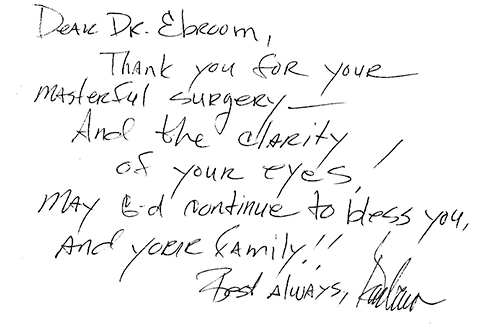 Dear Dr. Ebroom,
Thank you for your
masterful surgery—
And the clarity
of your eyes!
May G-d continue to bless you,
And your family!!
Best always,